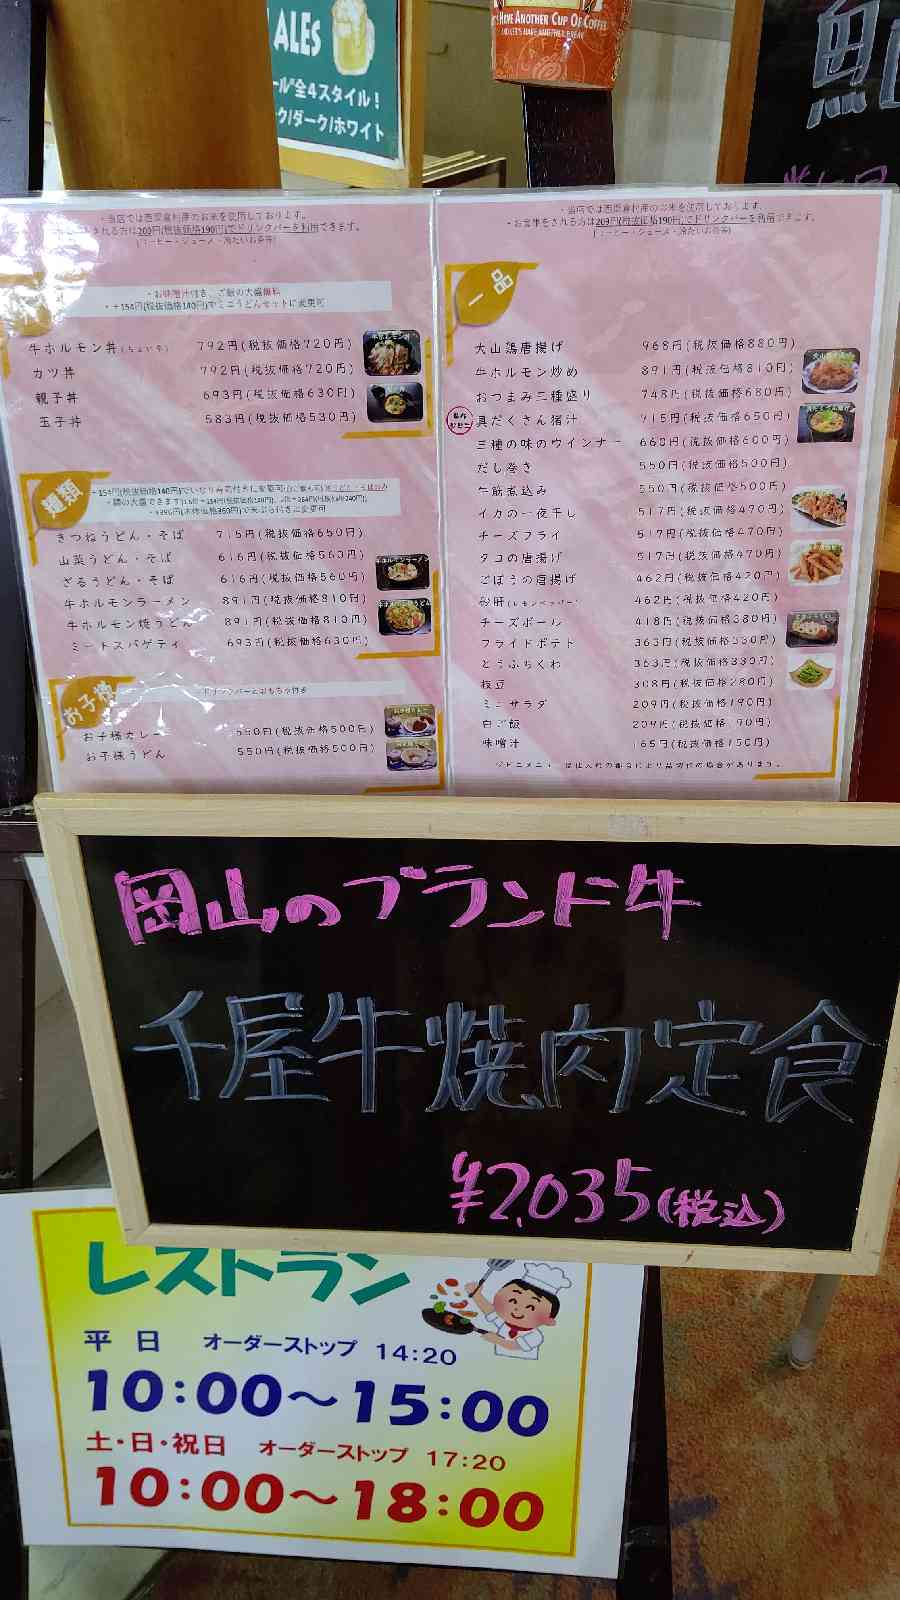 HAVE ANOTHER CUP OF COFFEE
ALEs
ール"全4スタイル！
ク/ダーク/ホワイト
・当店では西粟倉村産のお米を使用しております。
される方は200円(税抜価格190円)でドリンクバーを利用できます。
(コーヒー・ジュース・冷たいお茶等)
・お味噌汁付き、ご飯の大盛無料
・+154円(税抜価格140円)でミニうどんセットに変更可
牛ホルモン丼 792円(税抜価格720円)
カツ丼 792円(税抜価格720円)
親子丼 693円(税抜価格630円)
玉子丼 583円(税抜価格530円)
麺類
きつねうどん・そば 715円(税抜価格650円)
山菜うどん・そば 616円(税抜価格560円)
ざるうどん・そば 616円(税抜価格560円)
牛ホルモンラーメン 891円(税抜価格810円)
牛ホルモン焼うどん 891円(税抜価格810円)
ミートスパゲティ 693円(税抜価格630円)
お子様
ドリンクバーとおもちゃ付き
お子様カレー 550円(税抜価格500円)
お子様うどん 550円(税抜価格500円)
・当店では西粟倉村産のお米を使用しております。
・お食事をされる方は209円(税抜価格190円)でドリンクバーを利用できます。
(コーヒー・ジュース・冷たいお茶等)
一品
大山鶏唐揚げ 968円(税抜価格880円)
牛ホルモン炒め 891円(税抜価格810円)
おつまみ三種盛り 748円(税抜価格680円)
具だくさん猪汁 715円(税抜価格650円)
三種の味のウインナー 660円(税抜価格600円)
だし巻き 550円(税抜価格500円)
牛筋煮込み 550円(税抜価格500円)
イカの一夜干し 517円(税抜価格470円)
チーズフライ 517円(税抜価格470円)
タコの唐揚げ 517円(税抜価格470円)
ごぼうの唐揚げ 462円(税抜価格420円)
砂肝(レモンペッパー) 462円(税抜価格420円)
チーズボール 418円(税抜価格380円)
フライドポテト 363円(税抜価格330円)
とうふちくわ 363円(税抜価格330円)
枝豆 308円(税抜価格280円)
ミニサラダ 209円(税抜価格190円)
白ご飯 209円(税抜価格190円)
味噌汁 165円(税抜価格150円)
岡山のブランド牛
千屋牛焼肉定食
¥2,035(税込)
レストラン
平日 オーダーストップ 14:20
10:00〜15:00
土・日・祝日 オーダーストップ 17:20
10:00〜18:00